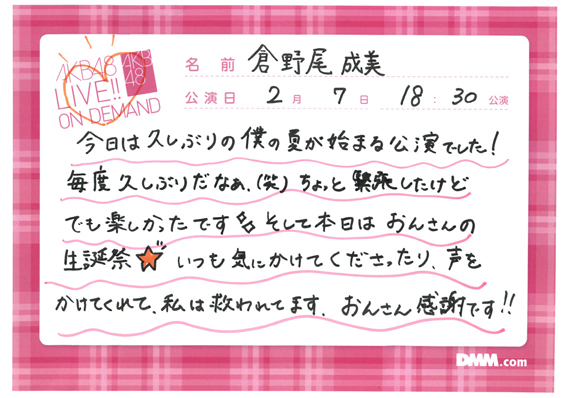 AKB48
LIVE!!
ON DEMAND
AKB
48
名前 倉野尾 成美
公演日 2月 7日 18:30公演
今日は久しぶりの僕の夏が始まる公演でした!
毎度久しぶりだなぁ、(笑)ちょっと緊張したけど
でも楽しかったです そして本日はおんさんの
生誕祭 いつも気にかけてくださったり、声を
かけてくれて、私は救われてます。おんさん感謝です!!
DMM.com